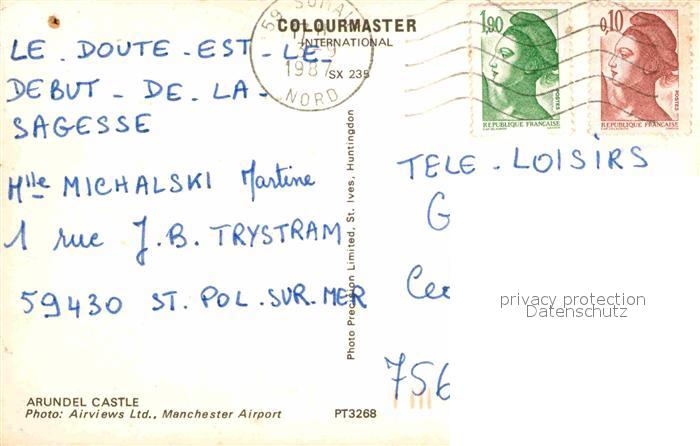 COLOURMASTER
INTERNATIONAL
SX 235
59
1987
NORD
1,90
POSTES
REPUBLIQUE FRANÇAISE
0,10
POSTES
REPUBLIQUE FRANÇAISE
LE - DOUTE - EST - LE -
DEBUT - DE - LA -
SAGESSE
Mlle MICHALSKI Martine
1 rue J.B. TRYSTRAM
59430 ST. POL. SUR. MER
Photo Precision Limited, St. Ives, Huntingdon
TELE - LOISIRS
G
756
privacy protection
Datenschutz
ARUNDEL CASTLE
Photo: Airviews Ltd., Manchester Airport
PT3268